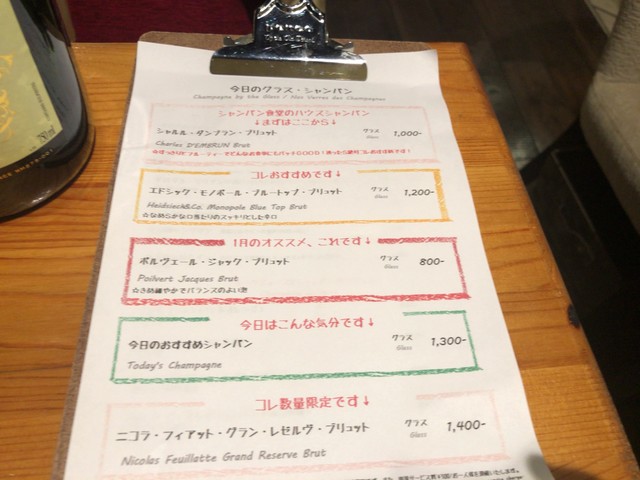 今日のグラス・シャンパン
Champagne by the Glass / Nos Verres des Champagnes
シャンパン食堂のハウスシャンパン
↓まずはここから↓
シャルル・ダンブラン・ブリュット グラス 1,000-
Charles D'EMBRUN Brut Glass
コレおすすめです↓
エドシック・モノポール・ブルートップ・ブリュット グラス 1,200-
Heidsieck&Co. Monopole Blue Top Brut Glass
☆なめらかな口当たりのスッキリとした辛口
1月のオススメ、これです↓
ポルヴェール・ジャック・ブリュット グラス 800-
Poilvert Jacques Brut Glass
☆きめ細やかでバランスのよい泡
今日はこんな気分です↓
今日のおすすめシャンパン グラス 1,300-
Today's Champagne Glass
コレ数量限定です↓
ニコラ・フィアット・グラン・レゼルヴ・ブリュット グラス 1,400-
Nicolas Feuillatte Grand Reserve Brut Glass